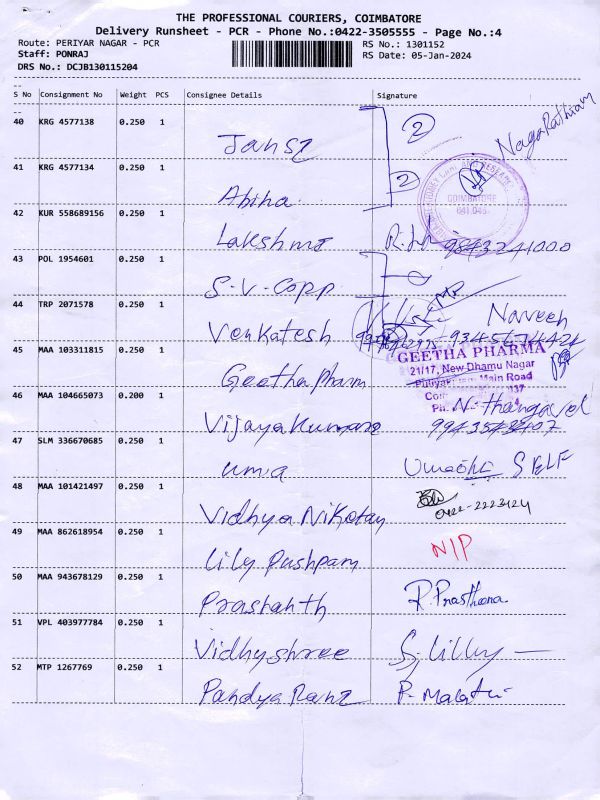 THE PROFESSIONAL COURIERS, COIMBATORE
Delivery Runsheet - PCR - Phone No.:0422-3505555 - Page No.:4
Route: PERIYAR NAGAR - PCR RS No.: 1301152
Staff: PONRAJ RS Date: 05-Jan-2024
DRS No.: DCJB130115204
S No Consignment No Weight PCS Consignee Details Signature
40 KRG 4577138 0.250 1 2 NagaRathinam
Jansz
41 KRG 4577134 0.250 1 2
COIMBATORE
641 045
Abiha
42 KUR 558689156 0.250 1
Lakshmi 9843241000
43 POL 1954601 0.250 1
S.V. Corp
44 TRP 2071578 0.250 1 Naveen
Venkatesh
45 MAA 103311815 0.250 1 GEETHA PHARMA
21/17, New Dhamu Nagar
Main Road
Geetha Pharm
46 MAA 104665073 0.200 1 N. Thangavel
Vijayakumar
47 SLM 336670685 0.250 1
uma SELF
48 MAA 101421497 0.250 1
Vidhya Nikotan 0422-2223424
49 MAA 862618954 0.250 1 NIP
Lily Pushpam
50 MAA 943678129 0.250 1
Prashanth
51 VPL 403977784 0.250 1
Vidhyshree S. Lilly
52 MTP 1267769 0.250 1
P. Malathi